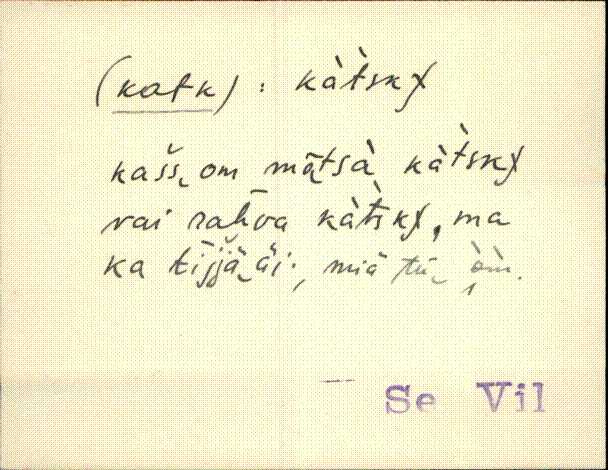 (katk) : kàtskχ
kašš om mõtsà kàtskχ
vai rahva kàtskχ, ma
ka tijjä äi, miä tū om.
Se Vil